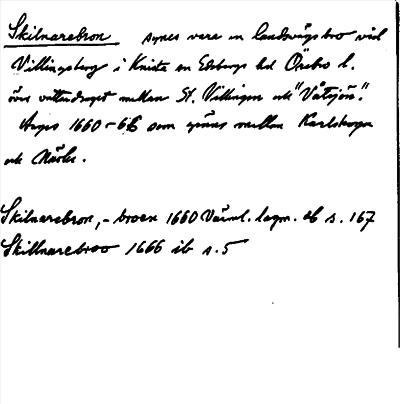 Skilnarebron synes vara en landsvägsbro vid
Villingsberg i Knista sn Edsbergs hd Örebro l.
över vattendraget mellan St. Villingen och "Våtsjön".
Anges 1660-66 som gräns mellan Karlskoga
och Närke.
Skilnarebron, - broen 1660 Värml. lagm. db s. 167
Skillnarebroo 1666 ib s. 5